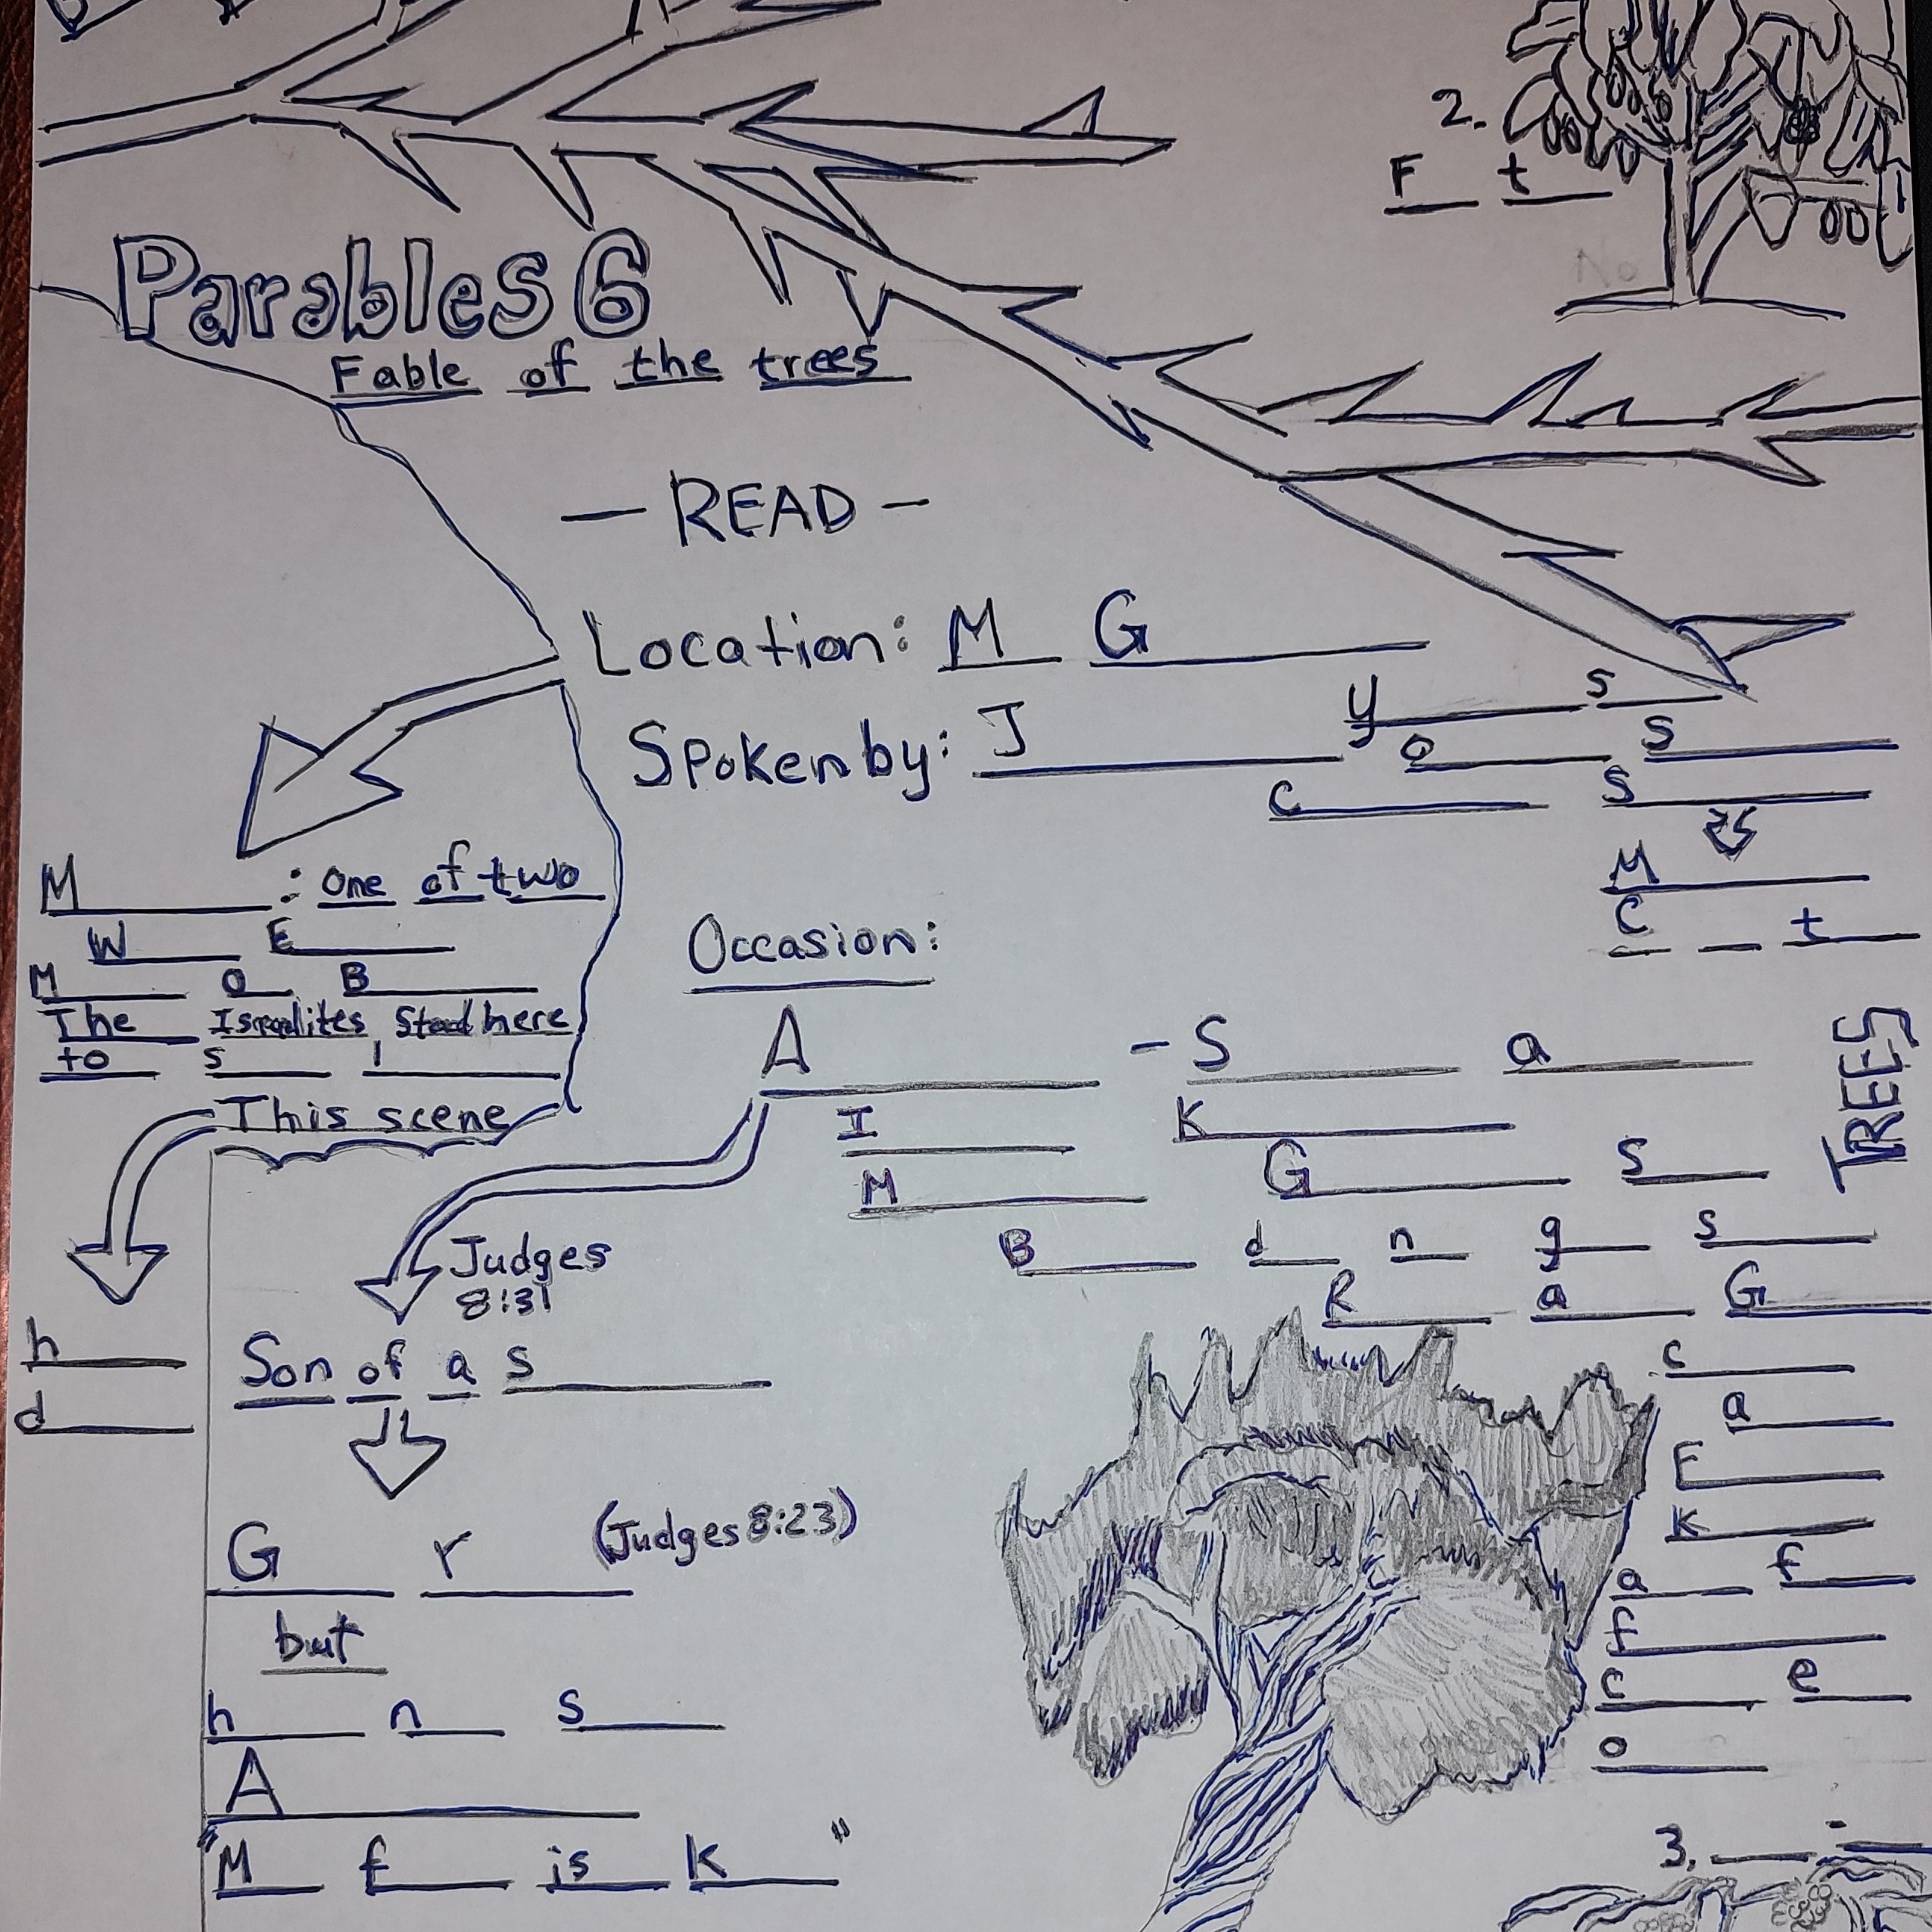 2.
F t
Parables 6
Fable of the trees
- READ -
Location: M G
Spoken by: J y s
o s
c s
M
C t
M : One of two
W E
M O B
The Israelites Stood here
to s l
This scene
h
d
Occasion:
A - S a
I K
M G S
B d n g s
R a G
c
a
E
K
a f
f
c e
o
TREES
Judges
8:31
Son of a s
G r (Judges 8:23)
but
h n s
A
"M f is K "
3.